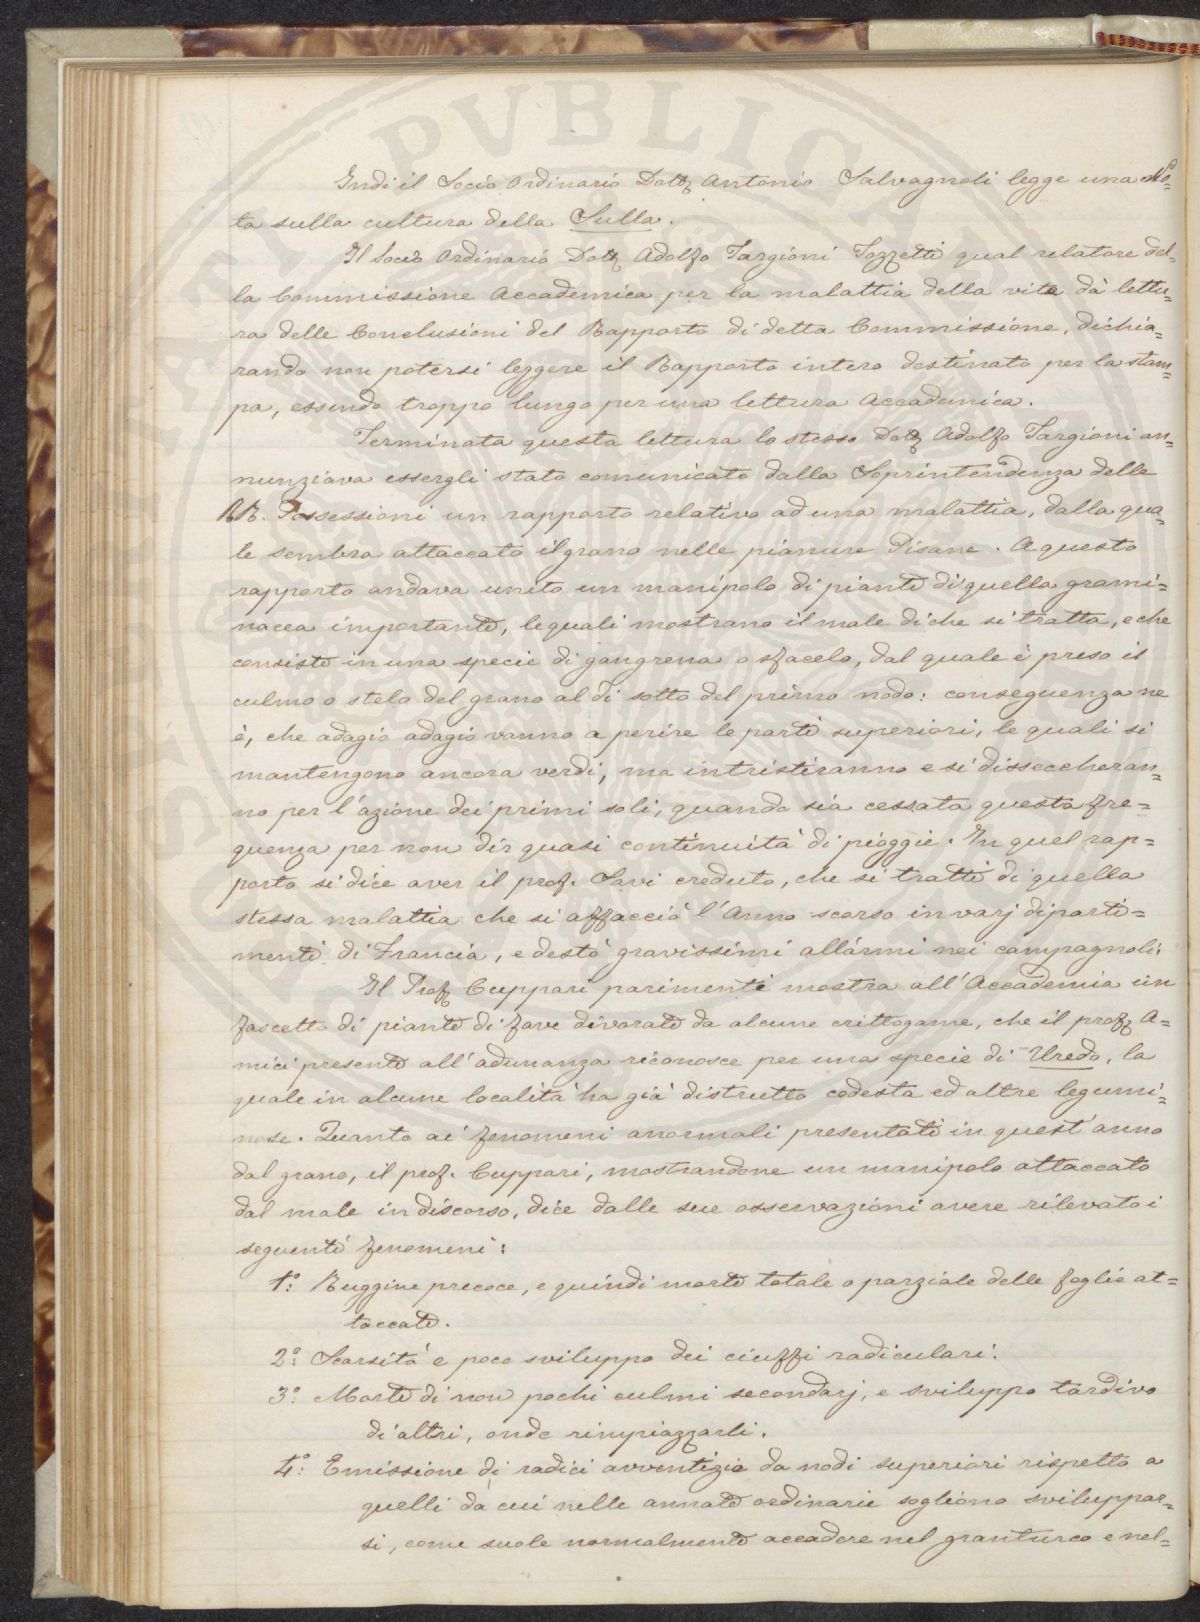 Indi il Socio Ordinario Dott. Antonio Salvagnoli legge una No=
ta sulla cultura della Sulla.
Il Socio Ordinario Dott. Adolfo Targioni Tozzetti qual relatore del=
la Commissione Accademica per la malattia della vite dà lettu=
ra delle Conclusioni del Rapporto di detta Commissione, dichia=
rando non potersi leggere il Rapporto intero destinato per la stam=
pa, essendo troppo lungo per una lettura Accademica.
Terminata questa lettura lo stesso Dott. Adolfo Targioni an=
nunziava essergli stato comunicato dalla Soprintendenza delle
RR. Possessioni un rapporto relativo ad una malattia, dalla qua=
le sembra attaccato il grano nelle pianure Pisane. A questo
rapporto andava unito un manipolo di piante di quella grami=
nacea importante, le quali mostrano il male di che si tratta, e che
consiste in una specie di gangrena o sfacelo, dal quale è preso il
culmo o stelo del grano al di sotto del primo nodo: conseguenza ne
è, che adagio adagio vanno a perire le parti superiori, le quali si
mantengono ancora verdi, ma intristiranno e si disseccheran=
no per l'azione dei primi soli, quando sia cessata questa fre=
quenza per non dir quasi continuità di pioggie. In quel rap=
porto si dice aver il prof. Savi creduto, che si tratti di quella
stessa malattia che si affacciò l'Anno scorso in varj diparti=
menti di Francia, e destò gravissimi allarmi nei campagnoli.
Il Prof. Cuppari parimente mostra all'Accademia un
fascetto di piante di fave divorate da alcune crittogame, che il prof. A=
mici presente all'adunanza riconosce per una specie di Uredo, la
quale in alcune località ha già distrutto codesta ed altre legumi=
nose. Quanto ai fenomeni anormali presentati in quest'anno
dal grano, il prof. Cuppari, mostrandone un manipolo attaccato
dal male in discorso, dice dalle sue osservazioni avere rilevato i
seguenti fenomeni:
1.° Ruggine precoce, e quindi morte totale o parziale delle foglie at=
taccate.
2.° Scarsità e poco sviluppo dei ciuffi radiculari.
3.° Morte di non pochi culmi secondarj, e sviluppo tardivo
di altri, onde rimpiazzarli.
4.° Emissione di radici avventizie da nodi superiori rispetto a
quelli da cui nelle annate ordinarie sogliono sviluppar=
si, come suole normalmente accadere nel granturco e nel=
PVBLICA